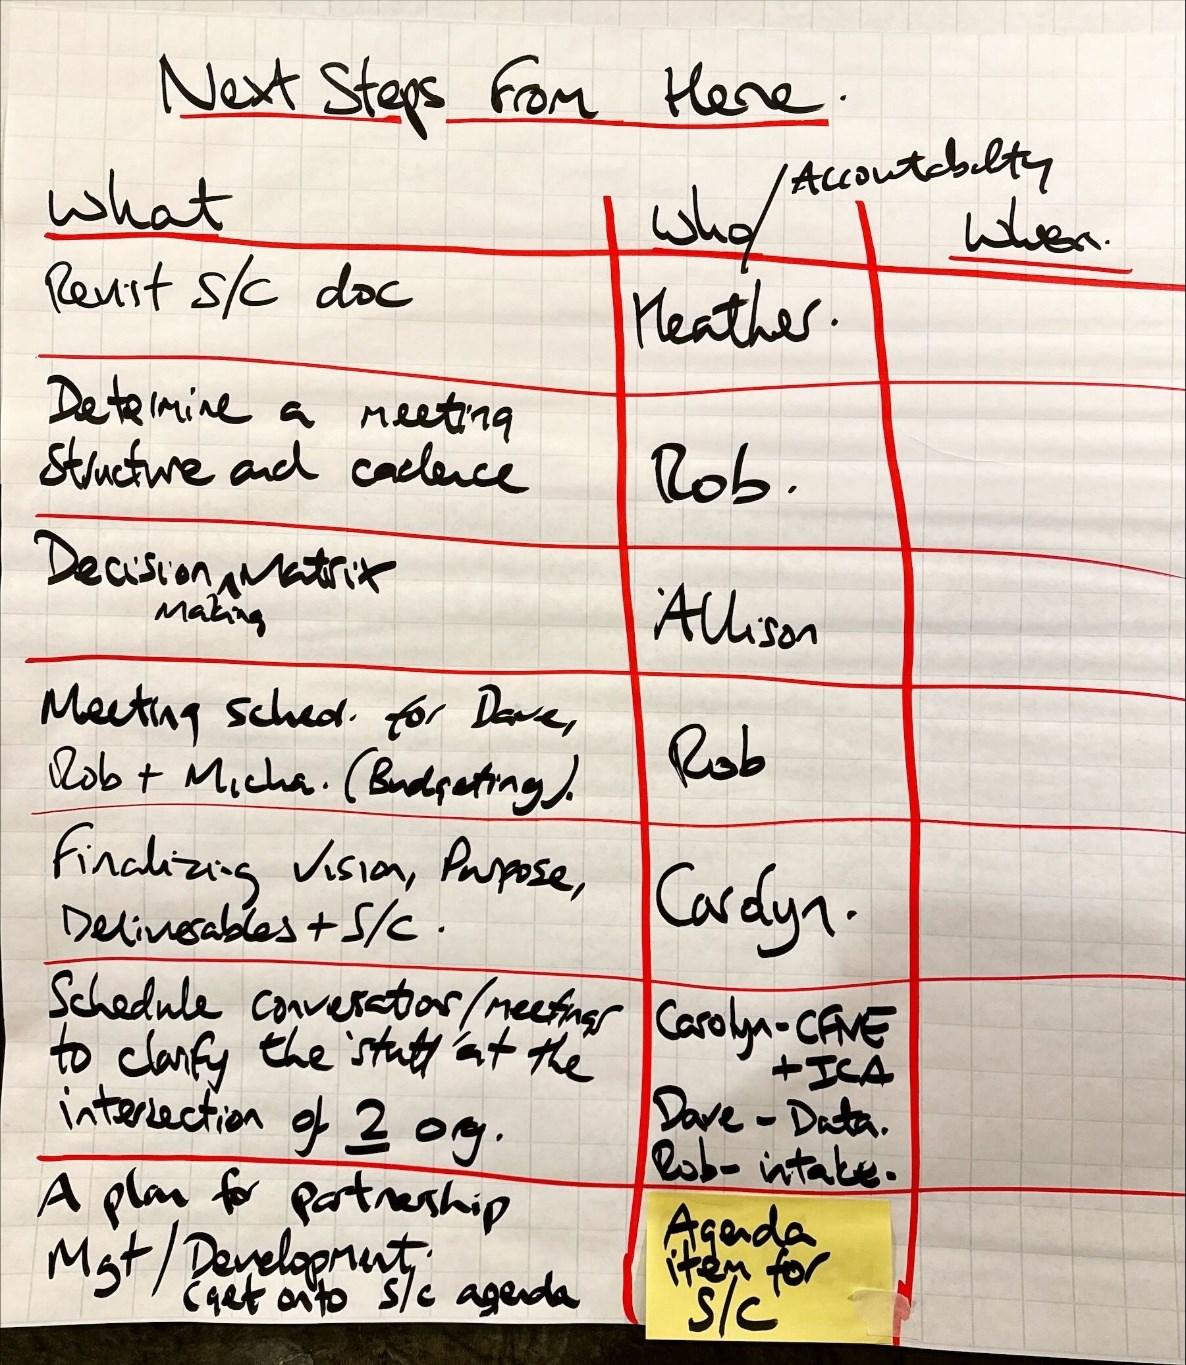 Next Steps From Here.
What
Who/Accountability
When.
Revisit S/C doc
Heather.
Determine a meeting
structure and cadence
Rob.
Decision ^ Matrix
Making
Allison
Meeting sched. for Dave,
Rob + Micha. (Budgeting).
Rob
Finalizing Vision, Purpose,
Deliverables + S/C.
Carolyn.
Schedule conversation/meetings
to clarify the 'stuff' at the
intersection of 2 org.
Carolyn - CFNE
+ ICA
Dave - Data.
Rob - intake.
A plan for partnership
Mgt/Development.
(get onto S/C agenda
Agenda
item for
S/C